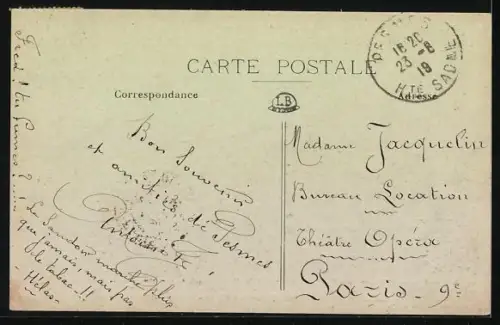 CARTE POSTALE
Correspondance
Adresse
LB
PESMES
16 20
23 -8
19
HTE SAONE
Bon Souvenir
et amitiés de Pesmes
Antoinette
Fred ! tu fumes ? ...
Le Samdou marche plus
que jamais, mais pas
de tabac - !!
Hélas -
Madame Jacquelin
Bureau Location
Théâtre Opéra
Paris - 9e